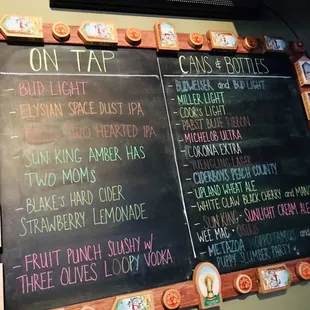 ON TAP
- BUD LIGHT
- ELYSIAN SPACE DUST IPA
TWO HEARTED IPA
- SUN KING AMBER HAS
TWO MOMS
- BLAKE'S HARD CIDER
STRAWBERRY LEMONADE
- FRUIT PUNCH SLUSHY W/
THREE OLIVES LOOPY VODKA
CANS & BOTTLES
- BUDWEISER AND BUD LIGHT
- MILLER LIGHT
- COORS LIGHT
- PABST BLUE RIBBON
- MICHELOB ULTRA
- CORONA EXTRA
- YUENGLING LAGER
- CIDERBOYS PEACH COUNTY
- UPLAND WHEAT ALE
- WHITE CLAW BLACK CHERRY AND MANGO
- SUN KING - SUNLIGHT CREAM ALE
WEE MAC - OSIRIS
- METAZOA
PUPPY SLUMBER PARTY